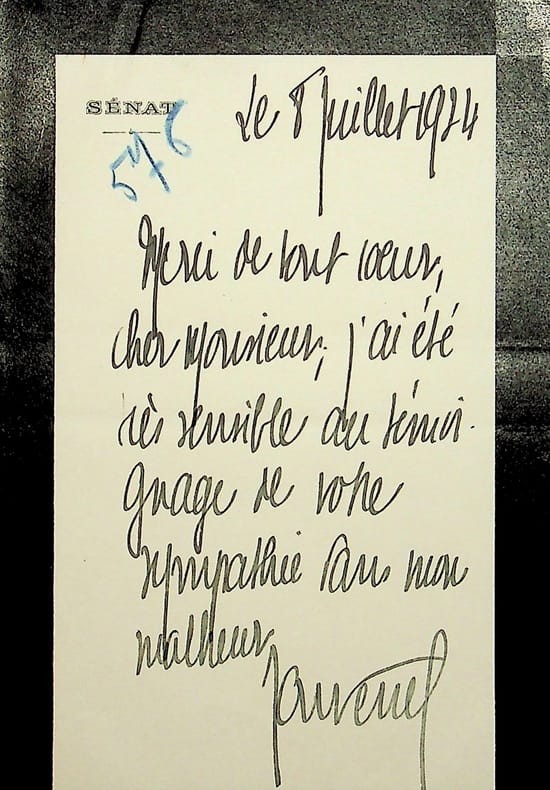 SÉNAT
576
Le 8 Juillet 1924
Merci de tout coeur,
cher Monsieur; j'ai été
très sensible au témoi-
gnage de votre
sympathie dans mon
malheur
Jouvenel